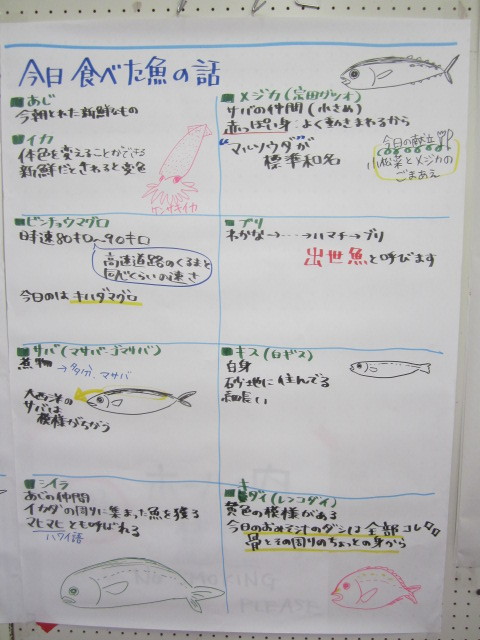 今日食べた魚の話
あじ
今朝とれた新鮮なもの
イカ
体色を変えることができる
新鮮だとさわると変色
ケンサキイカ
メジカ(宗田ガツオ)
サバの仲間(小さめ)
赤っぽい身:よく動きまわるから
"マルソウダ"が
標準和名
今日の献立
小松菜とメジカの
ごまあえ
ビンチョウマグロ
時速80キロ〜90キロ
高速道路のくるまと
同じくらいの速さ
今日のは キハダマグロ
ブリ
わかな→‥‥→ハマチ→ブリ
出世魚と呼びます
サバ(マサバ・ゴマサバ)
煮物
→タブン、マサバ
大西洋の
サバは
模様がちがう
キス(白ギス)
白身
砂地に住んでる
細長い
シイラ
あじの仲間
イカダの周りに集まった魚を獲る
マヒマヒとも呼ばれる
ハワイ語
キダイ(レンコダイ)
黄色の模様がある
今日のおみそ汁のダシは全部コレ
骨とその周りのちょっとの身から